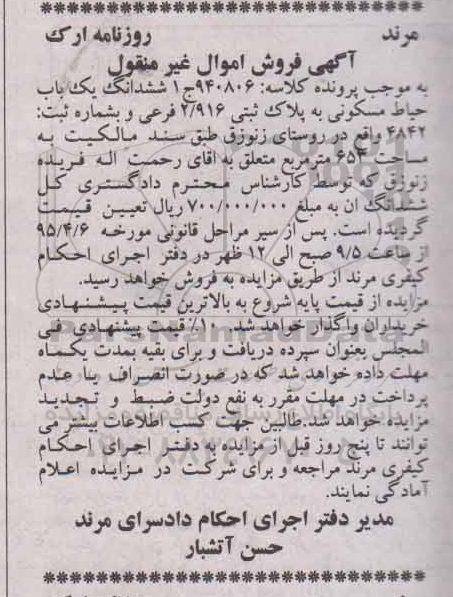 مرند روزنامه ارک
آگهی فروش اموال غیر منقول
به موجب پرونده کلاسه: ۹۴۰۸۰۶ج۱ ششدانگ یک باب
حیاط مسکونی به پلاک ثبتی ۲/۹۱۶ فرعی و بشماره ثبت:
۴۸۴۲ واقع در روستای زنوزق طبق سند مالکیت به
مساحت ۶۵۳ مترمربع متعلق به اقای رحمت اله فریده
زنوزق که توسط کارشناس محترم دادگستری کل
ششدانگ ان به مبلغ ۷۰۰/۰۰۰/۰۰۰ ریال تعیین قیمت
گردیده است. پس از سیر مراحل قانونی مورخه ۹۵/۴/۶
از ساعت ۹/۵ صبح الی ۱۲ ظهر در دفتر اجرای احکام
کیفری مرند از طریق مزایده به فروش خواهد رسید.
مزایده از قیمت پایه شروع به بالاترین قیمت پیشنهادی
خریداران واگذار خواهد شد. ۱۰٪ قیمت پیشنهادی فی
المجلس بعنوان سپرده دریافت و برای بقیه بمدت یکماه
مهلت داده خواهد شد که در صورت انصراف یا عدم
پرداخت در مهلت مقرر به نفع دولت ضبط و تجدید
مزایده خواهد شد.طالبین جهت کسب اطلاعات بیشتر می
توانند تا پنج روز قبل از مزایده به دفتر اجرای احکام
کیفری مرند مراجعه و برای شرکت در مزایده اعلام
آمادگی نمایند.
مدیر دفتر اجرای احکام دادسرای مرند
حسن آتشبار